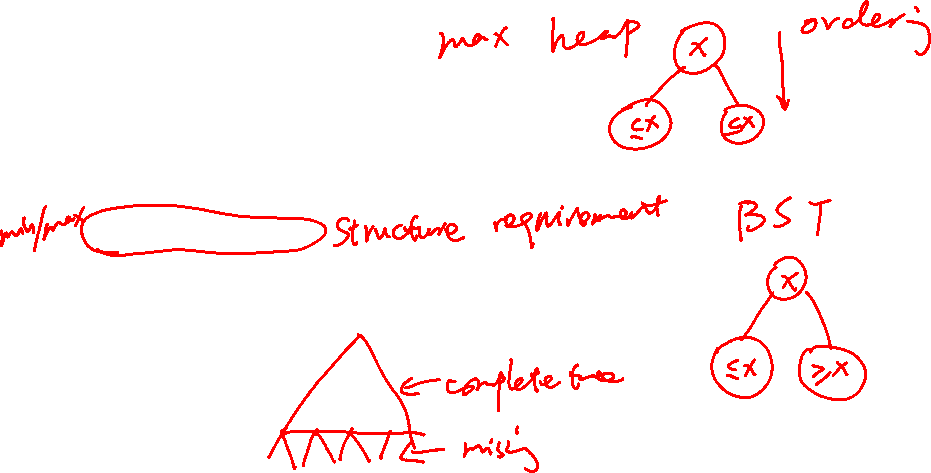 max heap
ordering
x
≤x ≤x
min/max
Structure requirement
BST
x
≤x ≥x
complete tree
missing